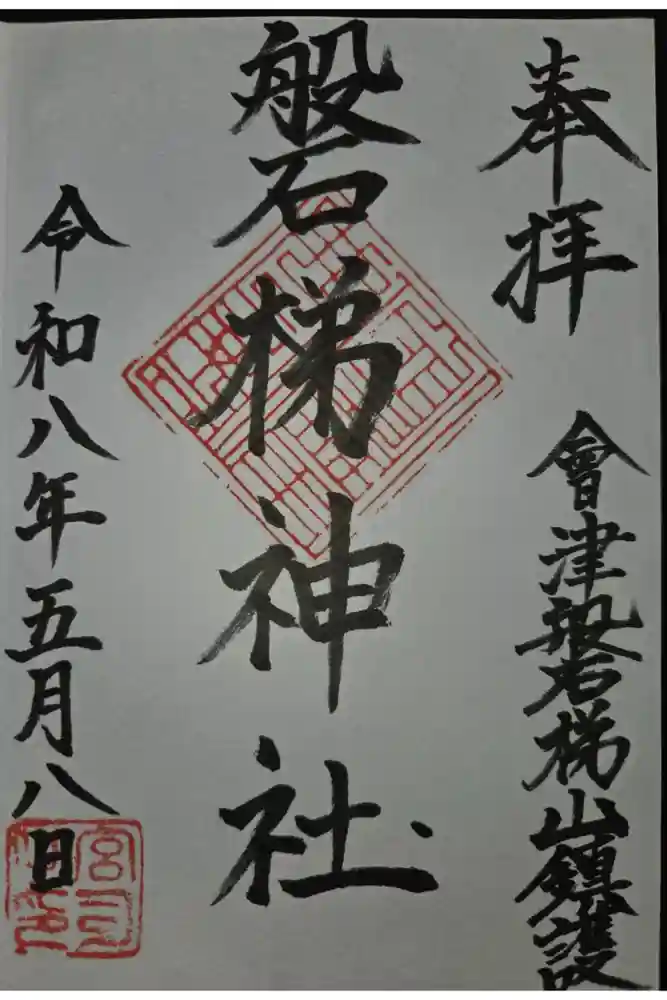 奉拝
會津磐梯山鎮護
磐梯神社
令和八年五月八日
宮司